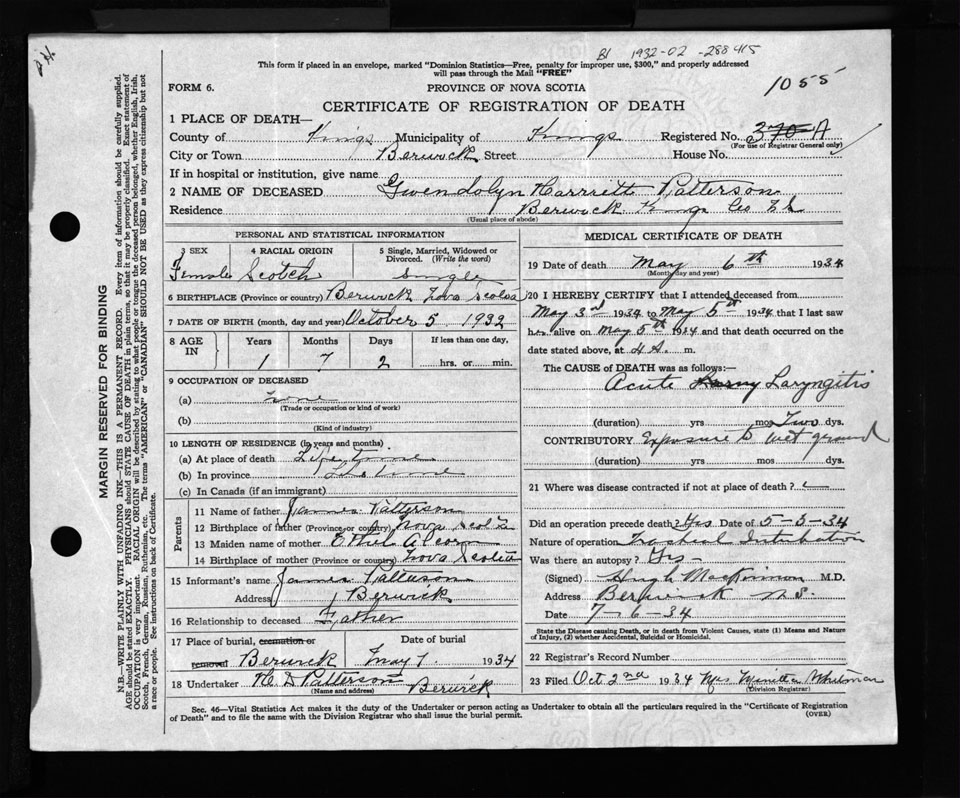 B1 1932-02-288415
This form if placed in an envelope, marked "Dominion Statistics—Free, penalty for improper use, $300," and properly addressed
will pass through the Mail "FREE"
1055
FORM 6.
PROVINCE OF NOVA SCOTIA
CERTIFICATE OF REGISTRATION OF DEATH
1 PLACE OF DEATH—
County of Kings Municipality of Kings Registered No. 370-A
(For use of Registrar General only)
City or Town Berwick Street House No.
If in hospital or institution, give name
2 NAME OF DECEASED Gwendolyn Harriett Patterson
Residence Berwick Kings Co N.S
(Usual place of abode)
PERSONAL AND STATISTICAL INFORMATION
3 SEX 4 RACIAL ORIGIN 5 Single, Married, Widowed or
Divorced. (Write the word)
Female Scotch Single
6 BIRTHPLACE (Province or country) Berwick Nova Scotia
7 DATE OF BIRTH (month, day and year) October 5, 1932
8 AGE IN Years Months Days If less than one day,
1 7 2 hrs. or min.
9 OCCUPATION OF DECEASED
(a) None
(Trade or occupation or kind of work)
(b)
(Kind of industry)
10 LENGTH OF RESIDENCE (in years and months)
(a) At place of death Life time
(b) In province Life time
(c) In Canada (if an immigrant)
Parents
11 Name of father James Patterson
12 Birthplace of father (Province or country) Nova Scotia
13 Maiden name of mother Ethel Alcorn
14 Birthplace of mother (Province or country) Nova Scotia
15 Informant's name James Patterson
Address Berwick
16 Relationship to deceased Father
17 Place of burial, cremation or removal Berwick
Date of burial May 7 1934
18 Undertaker H D Patterson Berwick
(Name and address)
MEDICAL CERTIFICATE OF DEATH
19 Date of death May 6th 1934
(Month, day and year)
20 I HEREBY CERTIFY that I attended deceased from
May 3rd 1934 to May 5th 1934 that I last saw
her alive on May 5th 1934 and that death occurred on
date stated above, at 4 A. m.
The CAUSE OF DEATH was as follows:—
Acute Laryngitis
(duration) yrs mos Two dys.
CONTRIBUTORY Exposure to wet ground
(duration) yrs mos dys.
21 Where was disease contracted if not at place of death?
Did an operation precede death? Yes Date of 5-5-34
Nature of operation Tracheal Intubation
Was there an autopsy? Yes
(Signed) Hugh MacKinnon M.D.
Address Berwick N.S.
Date 7-6-34
State the Disease causing Death, or in death from Violent Causes, state (1) Means and Nature
of Injury, (2) whether Accidental, Suicidal or Homicidal.
22 Registrar's Record Number
23 Filed Oct 2nd 1934 Mrs Whitman
(Division Registrar)
Sec. 46—Vital Statistics Act makes it the duty of the Undertaker or person acting as Undertaker to obtain all the particulars required in the "Certificate of Registration
of Death" and to file the same with the Division Registrar who shall issue the burial permit.
(OVER)
MARGIN RESERVED FOR BINDING
N.B.—WRITE PLAINLY WITH UNFADING INK—THIS IS A PERMANENT RECORD. Every item of information should be carefully supplied.
AGE should be stated EXACTLY. PHYSICIANS should STATE CAUSE OF DEATH in plain terms, so that it may be properly classified. Exact statement of
OCCUPATION is very important. RACIAL ORIGIN will be described by stating to what people or tongue the deceased person belonged, whether English, Irish,
Scotch, French, German, Russian, Ruthenian, etc. The terms "AMERICAN" or "CANADIAN" SHOULD NOT BE USED as they express citizenship but not
a race or people. See instructions on back of Certificate.